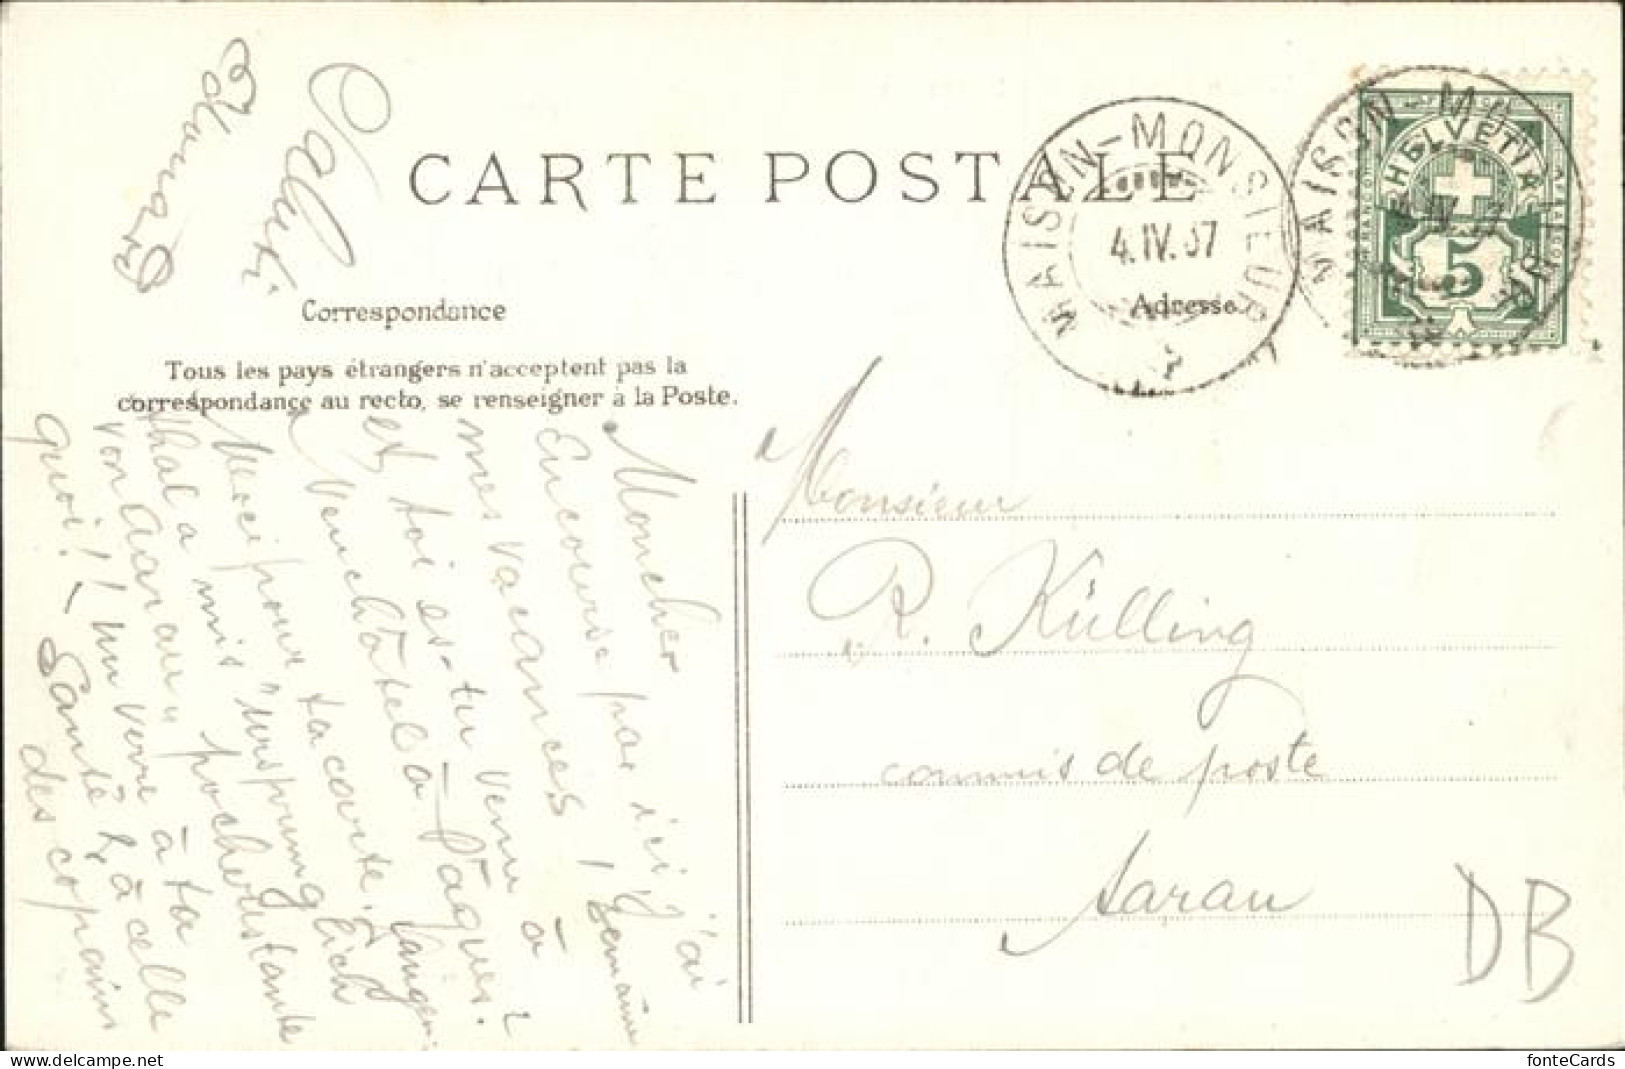 CARTE POSTALE
Correspondance
Tous les pays étrangers n'acceptent pas la
correspondance au recto, se renseigner à la Poste.
Adresse
MAISON-MONSIEUR
4.IV.07
MAISON-MONSIEUR
HELVETIA
5
Moncher
En course par ici j'ai
mes vacances! 1 semaine
et toi es-tu venu à
Neuchâtel à Pâques?
Merci pour ta carte.
thal a mis "ursprünglich
von Aarau" poche restante
quoi! Un verre à ta
Santé & à celle
des copains
Salut
Monsieur
R. Külling
commis de poste
Aarau
DB
fonteCards